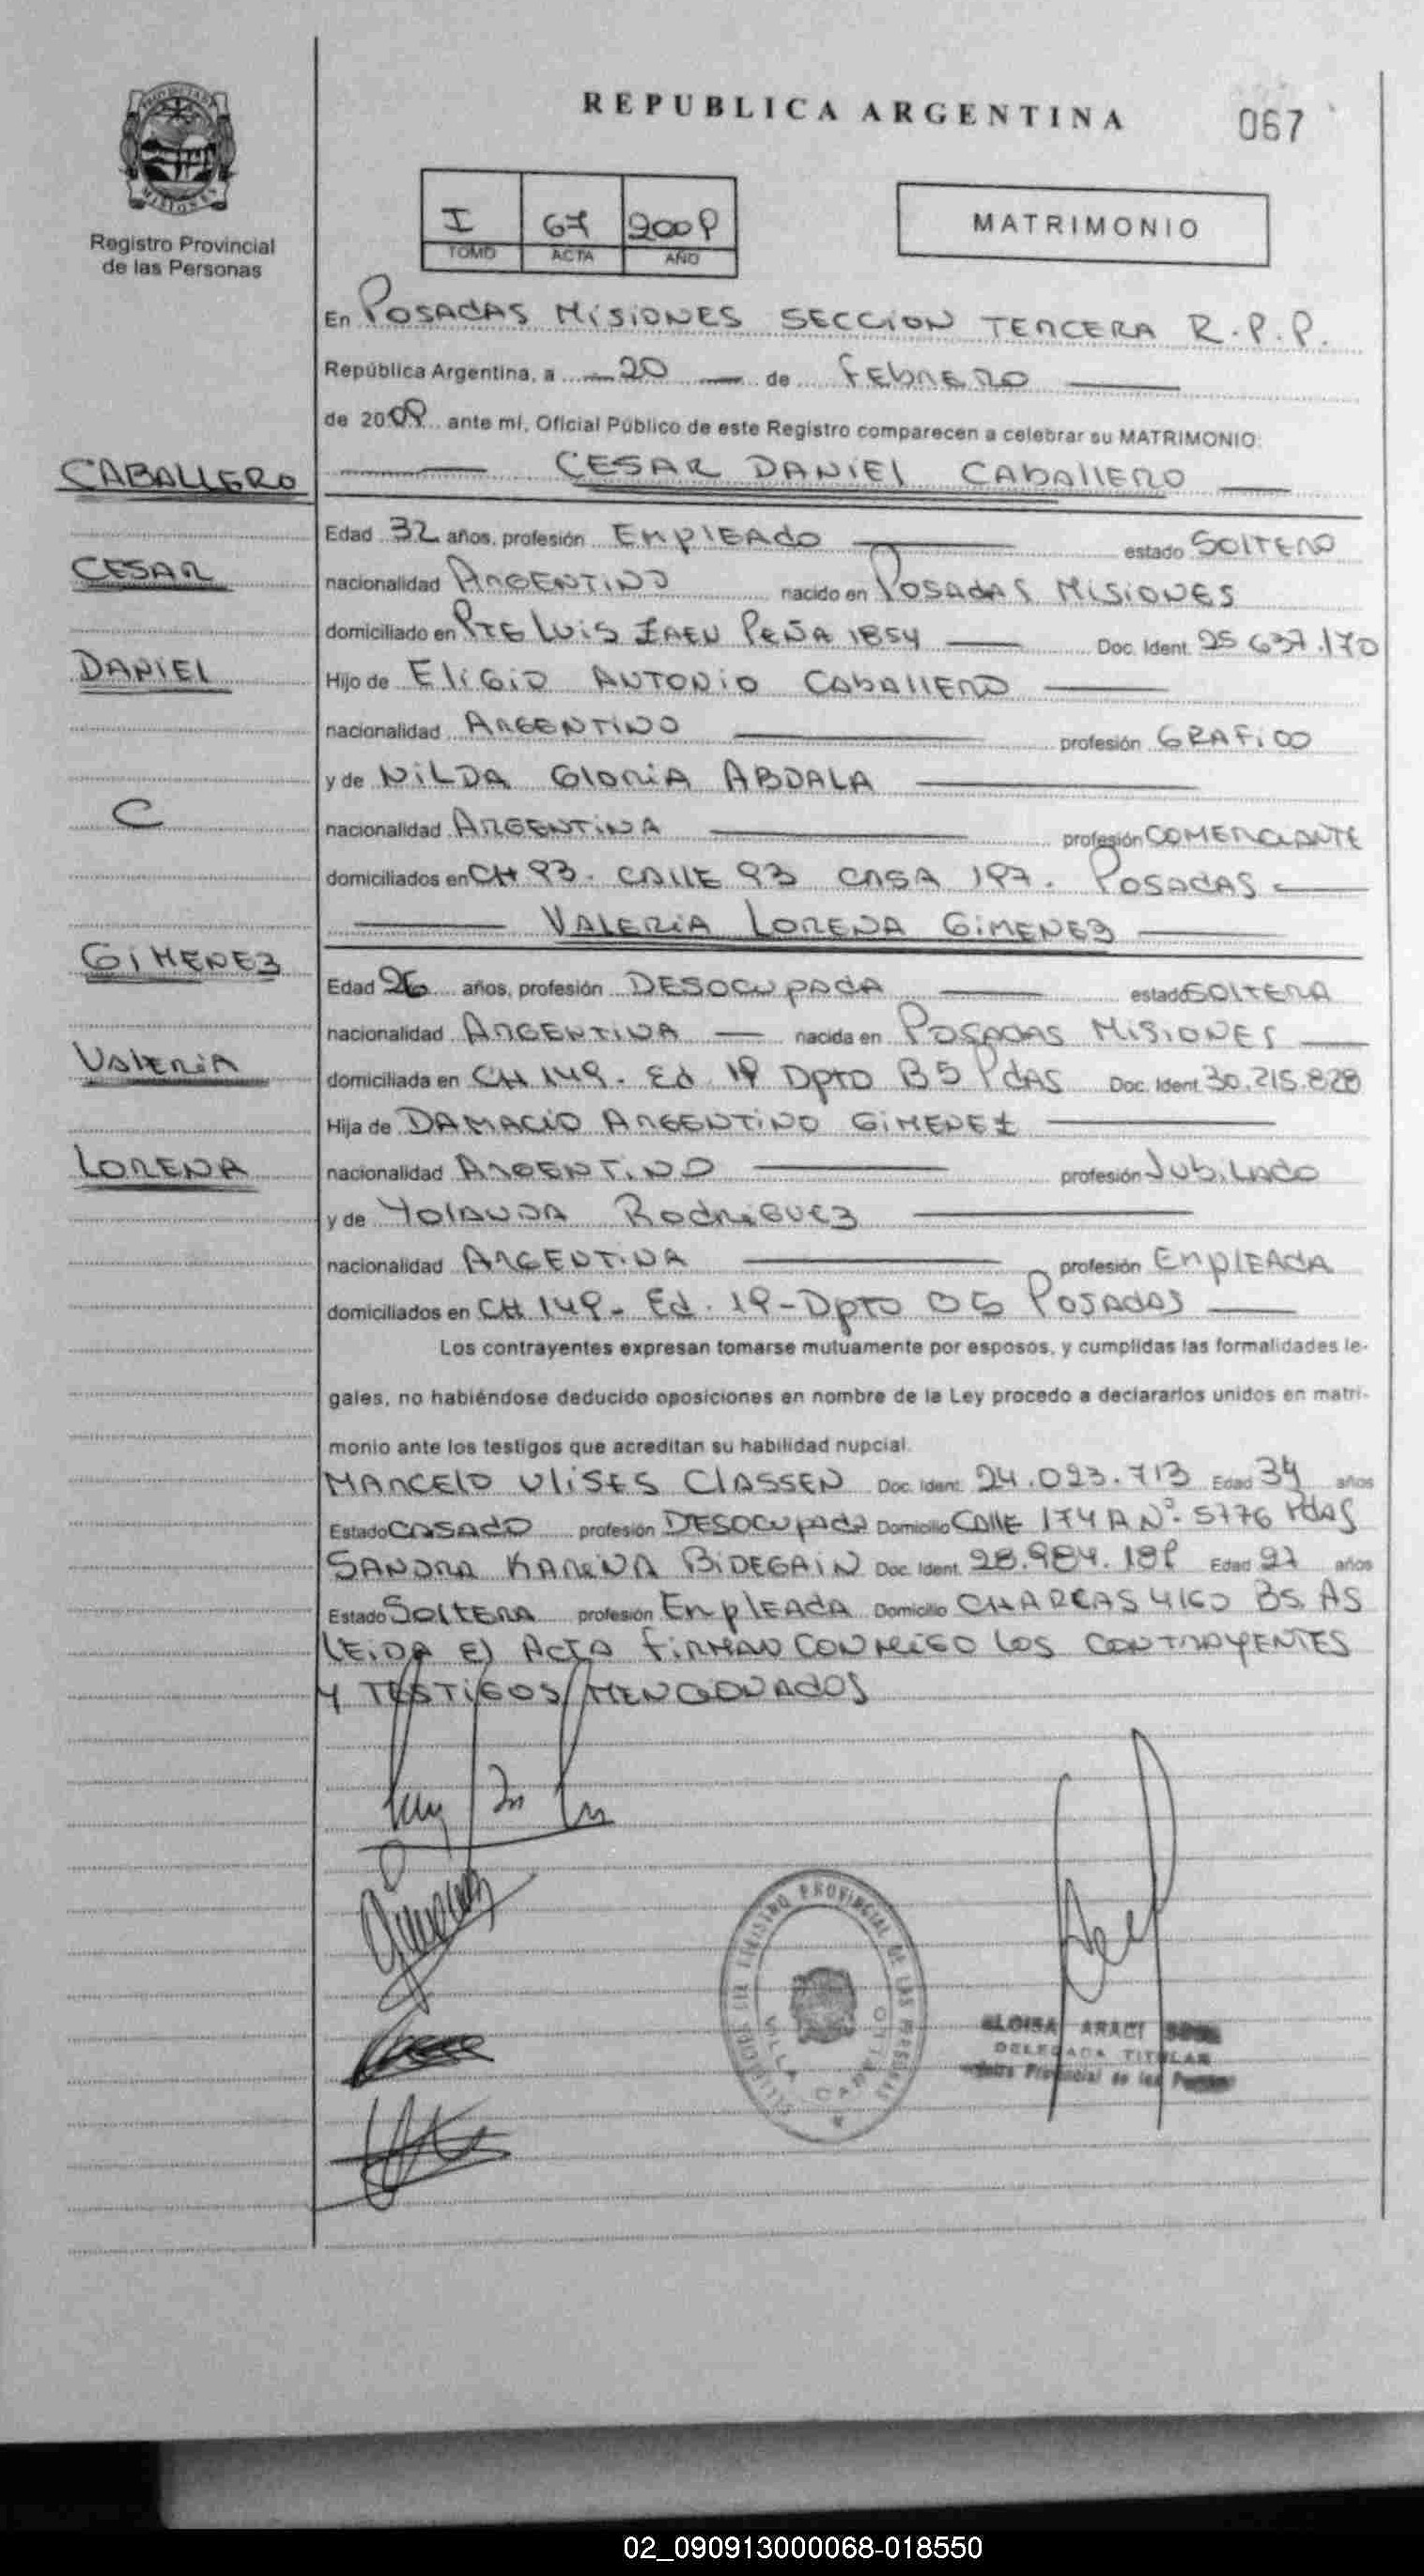 REPUBLICA ARGENTINA
067
Registro Provincial
de las Personas
I 67 2009
TOMO ACTA AÑO
MATRIMONIO
En POSADAS MISIONES SECCION TERCERA R.P.P.
República Argentina, a 20 de FEbRERO
de 2009 ante mí, Oficial Público de este Registro comparecen a celebrar su MATRIMONIO:
CABALLERO
CESAR DANIEL CAbAllERO
Edad 32 años, profesión EMPlEAdo estado SOlTERO
CESAR
nacionalidad ARGENTINO nacido en POSAdAS MISIONES
domiciliado en PTE LUIS SAEN PEÑA 1854 Doc. Ident. 25 637.170
DANIEL
Hijo de EliGiO ANTONIO CAbAllERO
nacionalidad ARGENTINO profesión GRAFICO
y de NILDA GlORIA ABDALA
C
nacionalidad ARGENTINA profesión COMERCIANTE
domiciliados en CH 93. CAllE 93 CASA 197. POSADAS
VALERIA LORENA GIMENEZ
GIMENEZ
Edad 26 años, profesión DESOCUPADA estado SOlTERA
nacionalidad ARGENTINA nacida en POSADAS MISIONES
VALERIA
domiciliada en CH 149. Ed 19 DPTO B5 PdAS Doc. Ident. 30.215.828
Hija de DAMACIO ARGENTINO GIMENEZ
LORENA
nacionalidad ARGENTINO profesión JUbILADO
y de YOlANDA RODRIGUEZ
nacionalidad ARGENTINA profesión EMPlEADA
domiciliados en CH 149- Ed. 19-DPTO POSADAS
Los contrayentes expresan tomarse mutuamente por esposos, y cumplidas las formalidades le-
gales, no habiéndose deducido oposiciones en nombre de la Ley procedo a declararlos unidos en matri-
monio ante los testigos que acreditan su habilidad nupcial.
MARCElO UlISES ClASSEN Doc. Ident. 24.023.713 Edad 34 años
Estado CASADO profesión DESOCUPADO Domicilio CAllE 174 A Nº 5776 PdAS
SANDRA KARINA BIDEGAIN Doc. Ident. 28.984.189 Edad 27 años
Estado SOlTERA profesión EMPlEADA Domicilio CHARCAS 4160 BS. AS
LEIDA El ACTA FIRMAN CONMIGO LOS CONTRAYENTES
Y TESTIGOS MENCIONADOS
REGISTRO PROVINCIAL DE LAS PERSONAS
VILLA CABELLO
ELOISA ARACI
DELEGADA TITULAR
Provincial de las
02_090913000068-018550